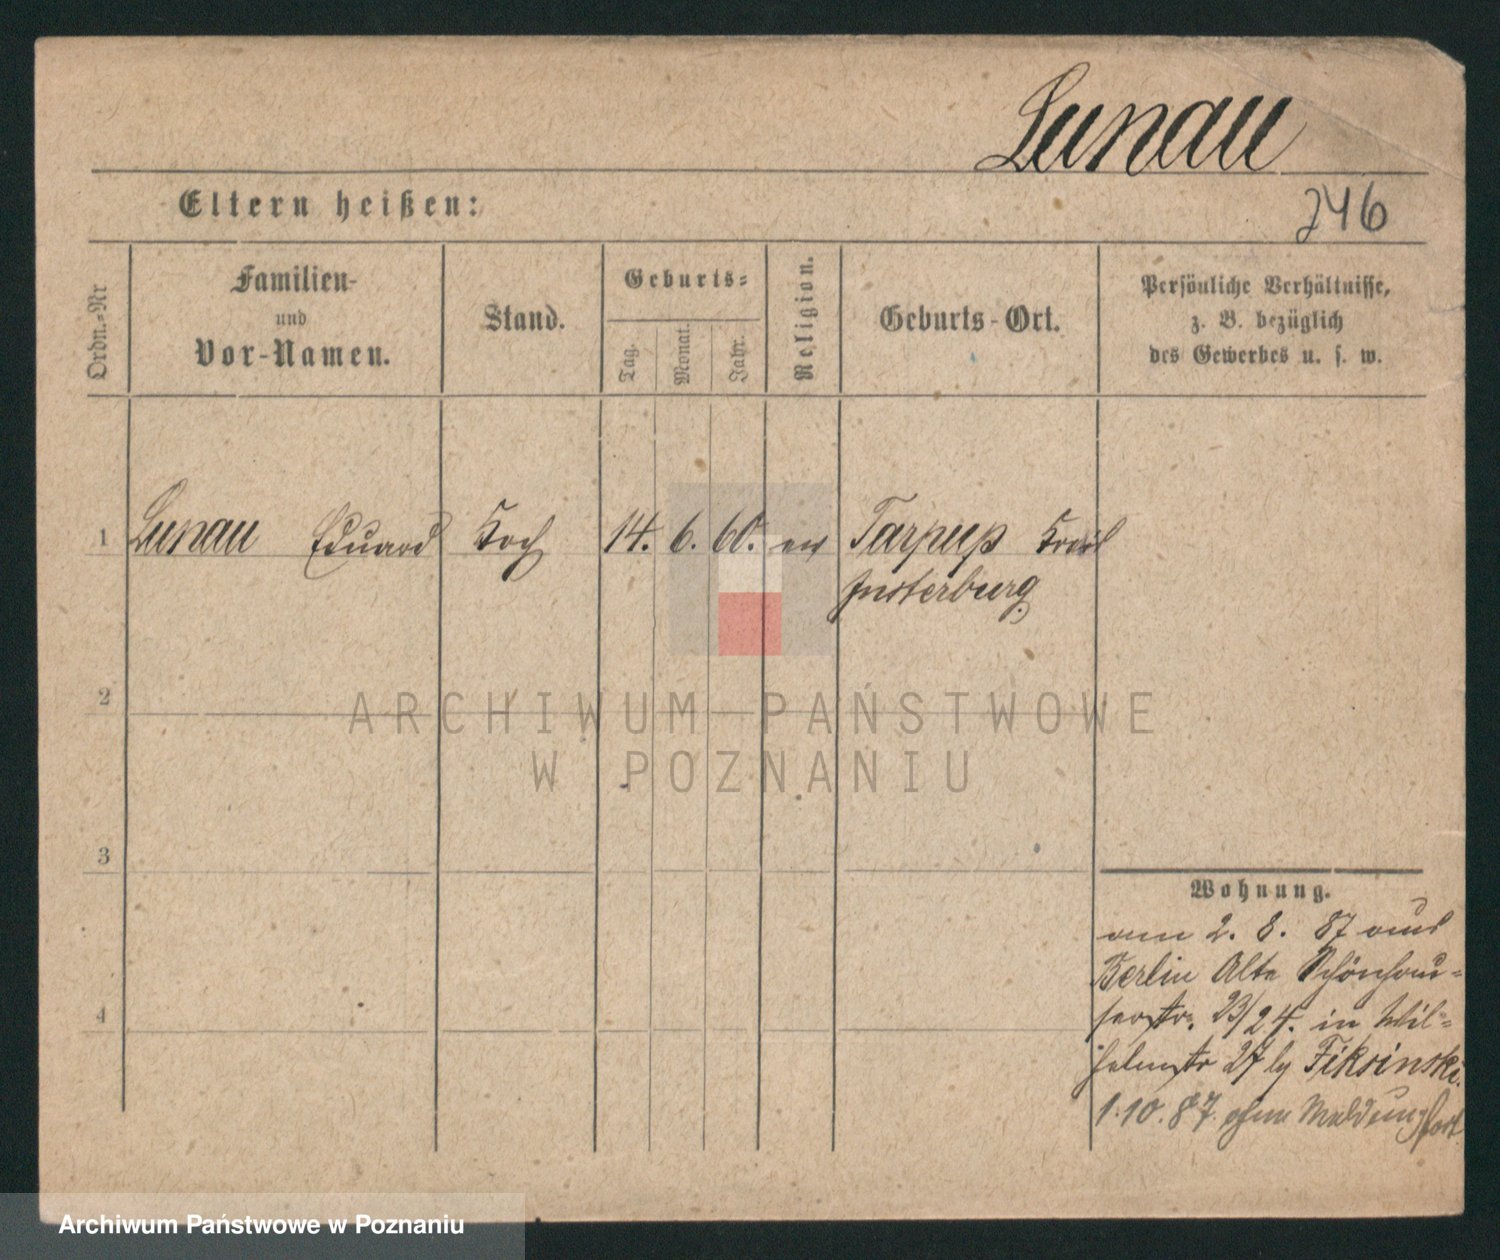 Lunau
246
Eltern heißen:
Ordn.-Nr
Familien-
und
Vor-Namen.
Stand.
Geburts-
Tag.
Monat.
Jahr.
Religion.
Geburts-Ort.
Persönliche Verhältnisse,
z. B. bezüglich
des Gewerbes u. s. w.
1 Lunau Eduard Koch 14. 6. 60. ev Tarpup Kreis
Insterburg
2
ARCHIWUM PAŃSTWOWE
W POZNANIU
3
Wohnung.
am 2. 8. 87 aus
Berlin Alte Schönhau-
serstr. 23/24. in Wil-
helmstr 27 by Fiksinski
4
1.10.87. ohne Meldung fort
Archiwum Państwowe w Poznaniu